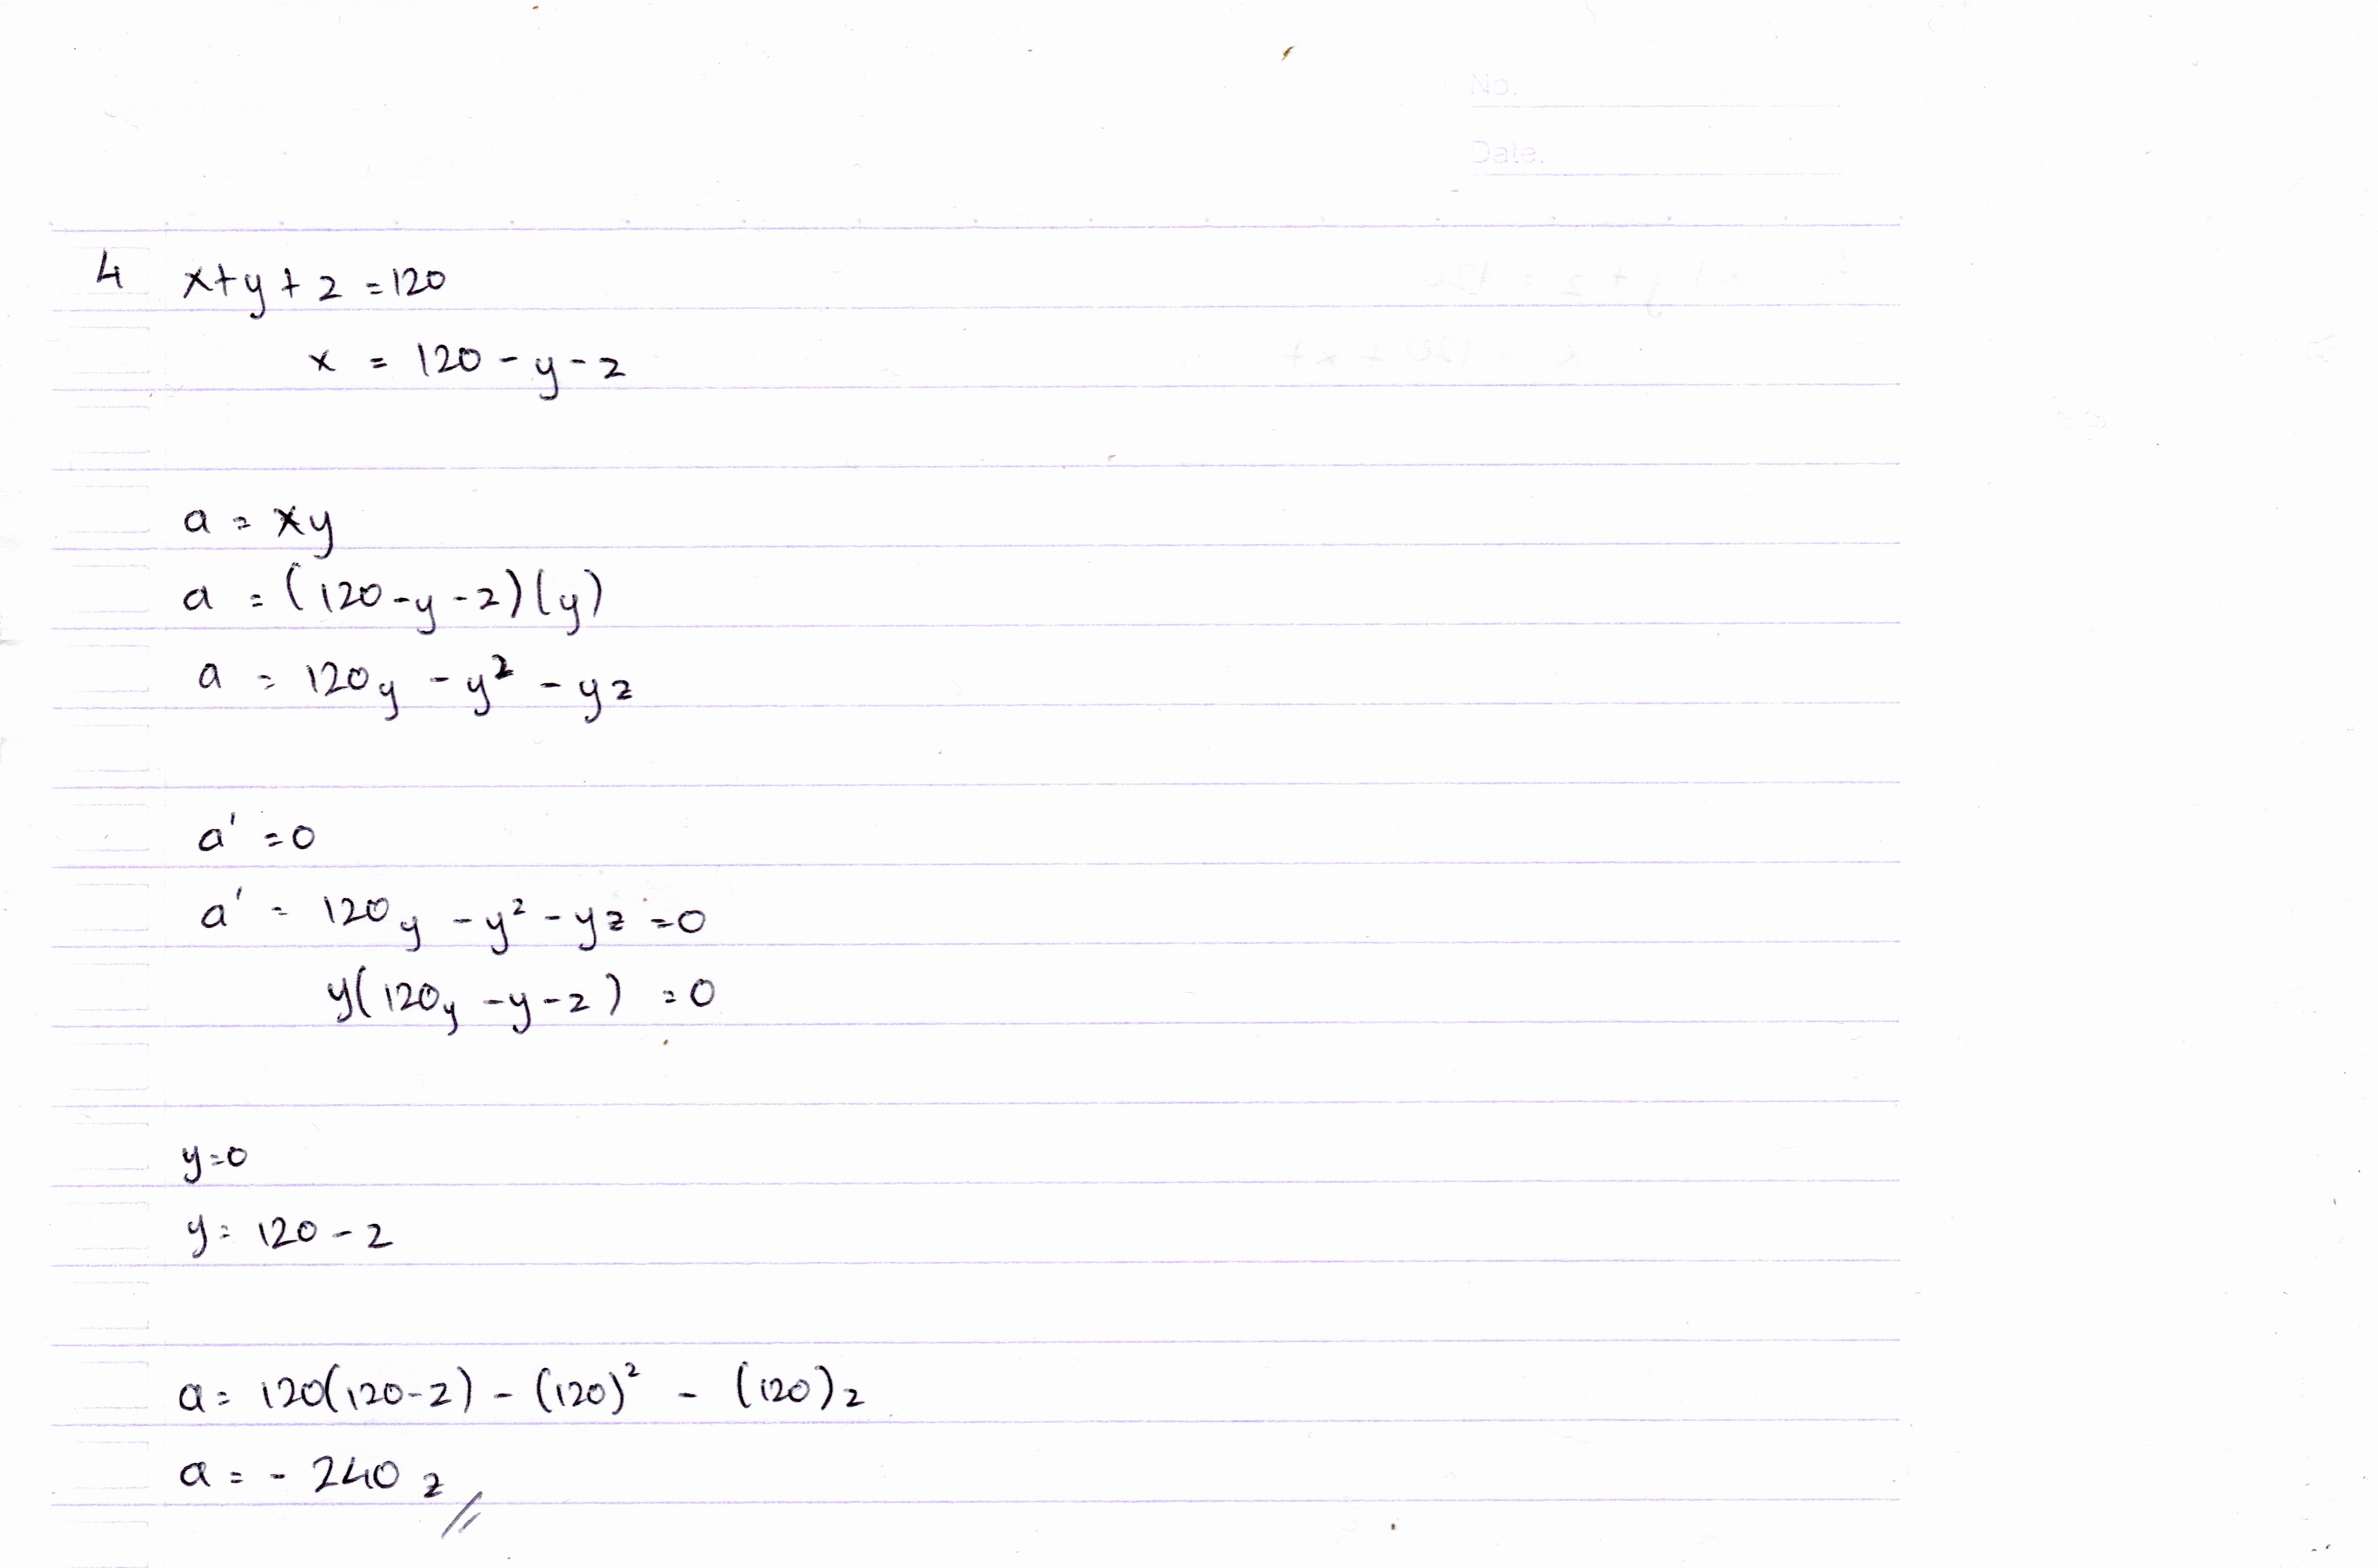 No.
Date.
4 x+y+z =120
x = 120 - y - z
a = xy
a = (120-y-z)(y)
a = 120y - y² - yz
a' =0
a' = 120y - y² - yz =0
y(120y - y - z) =0
y=0
y= 120 - z
a= 120(120-z) - (120)² - (120)z
a= - 240 z //